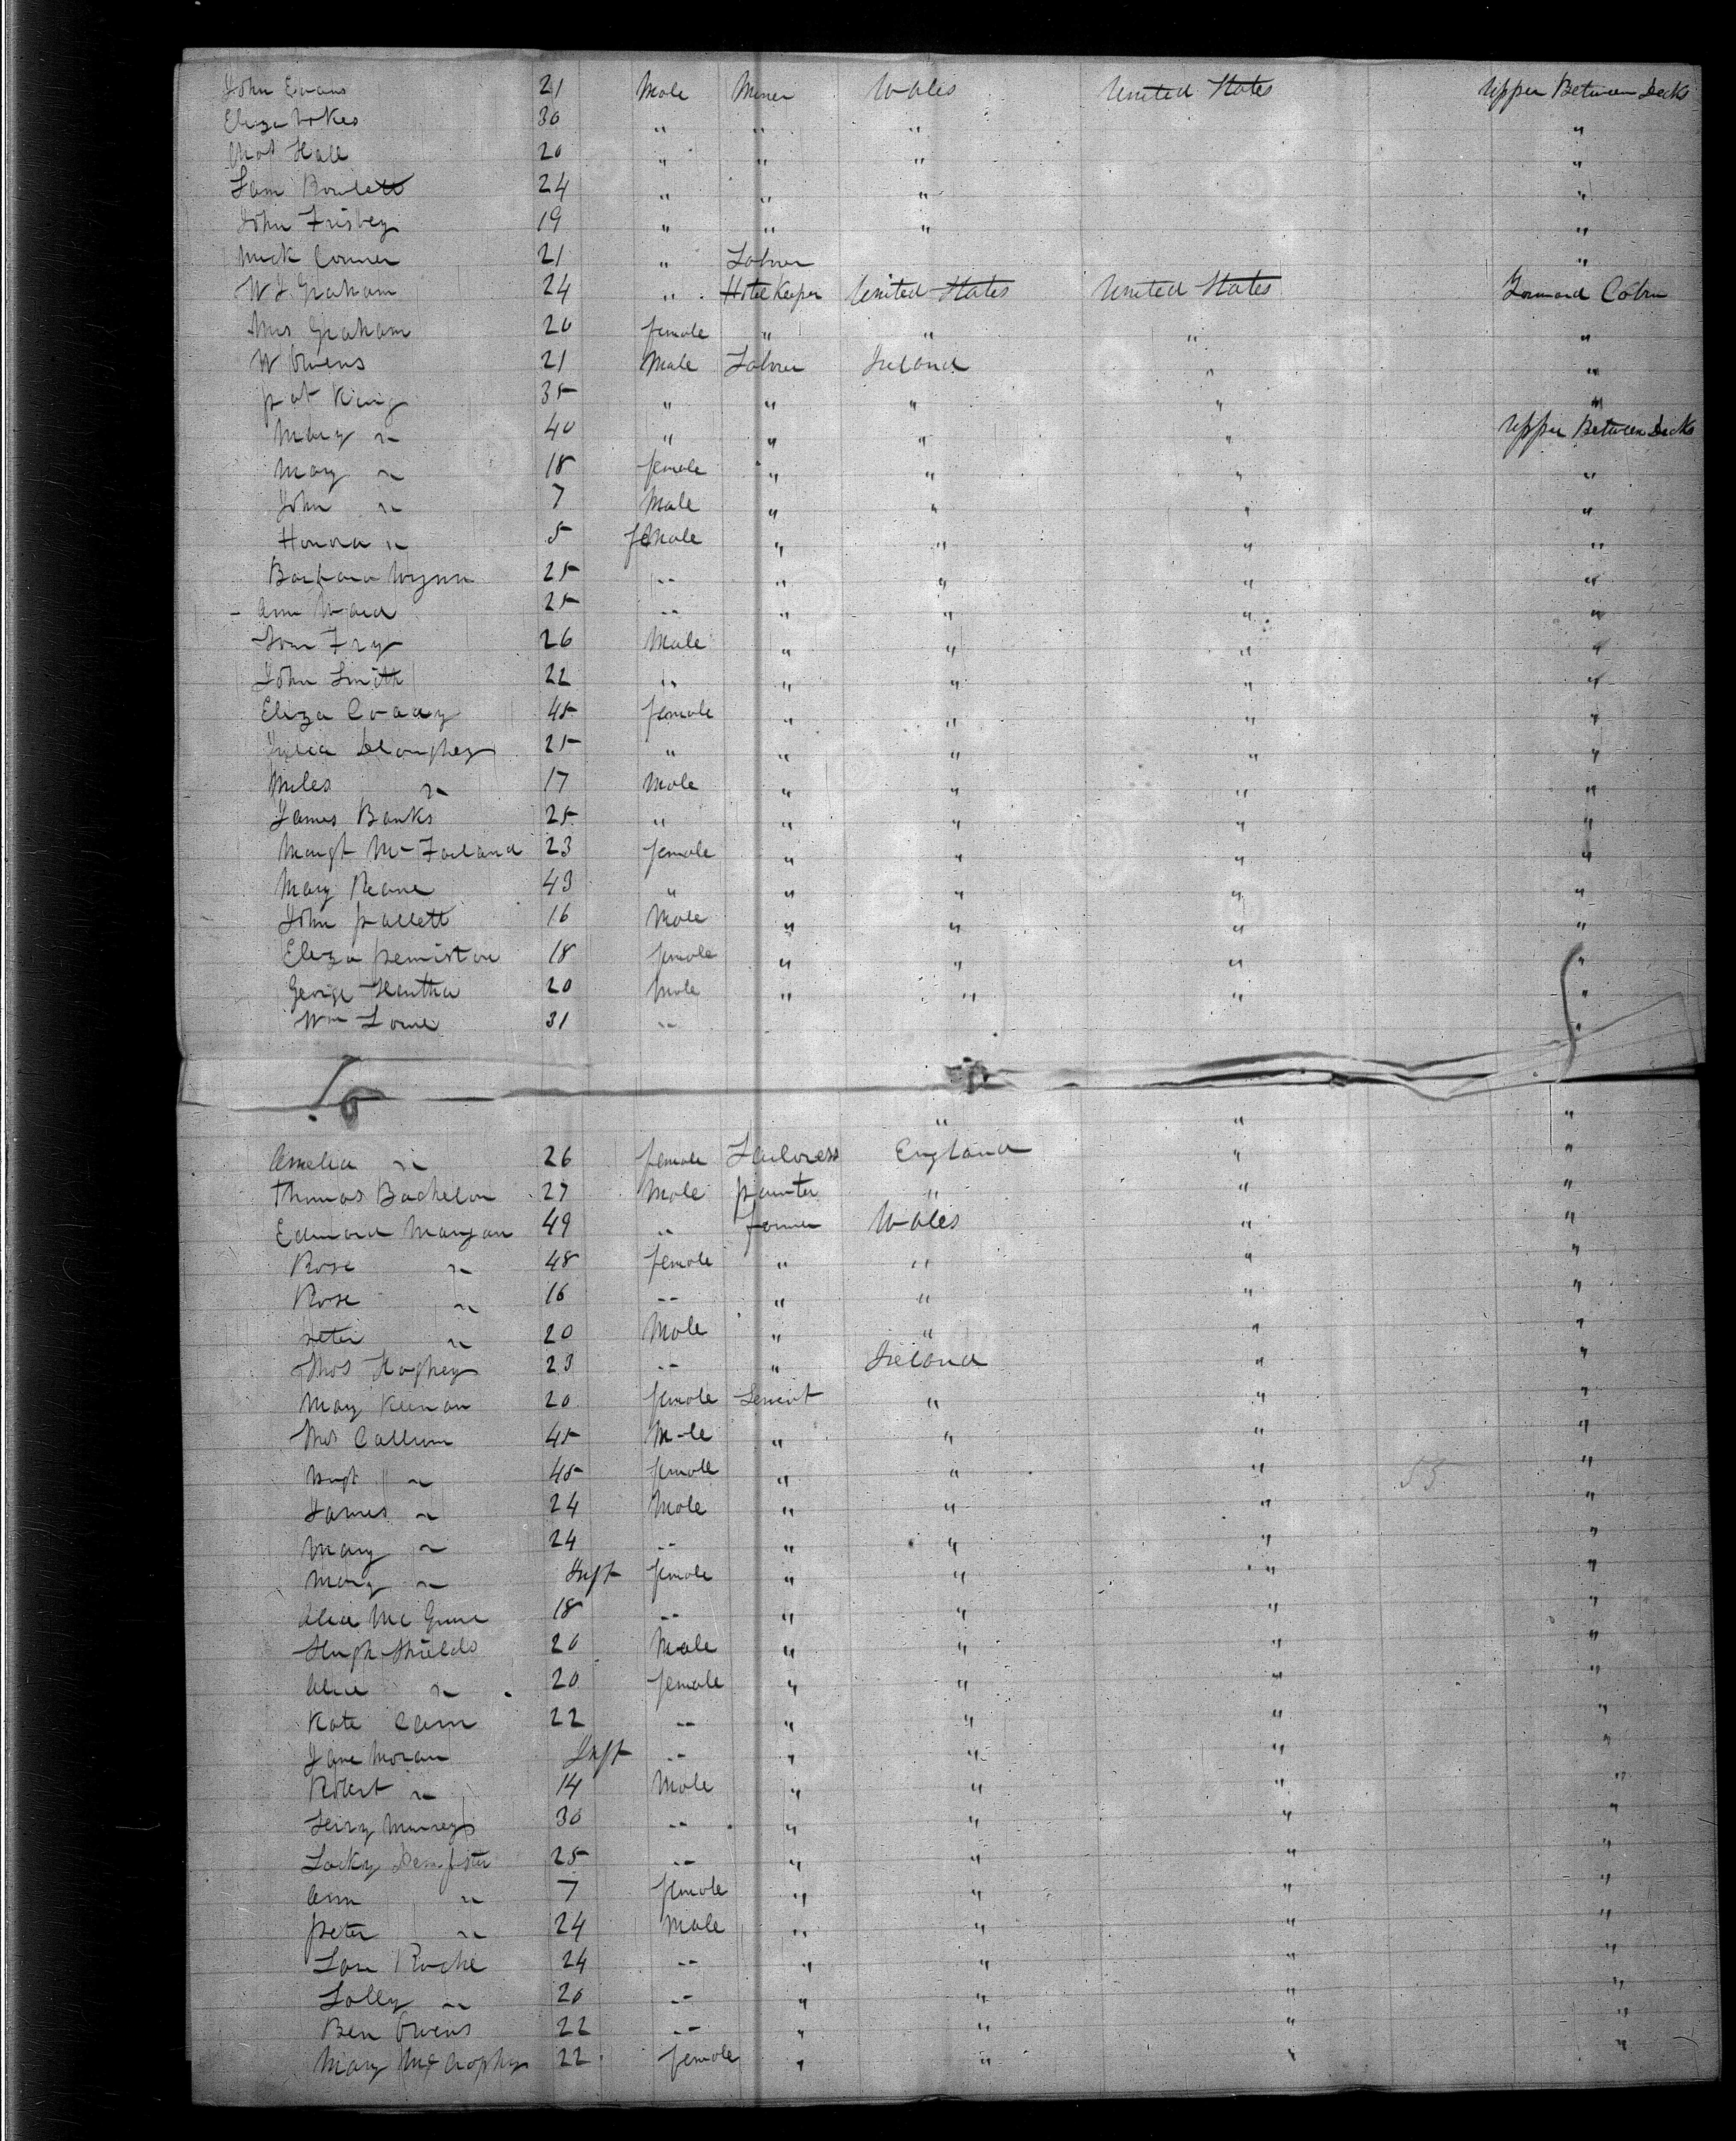 John Evans 21 Male Miner Wales United States Upper Between Decks
Eliza Vokes 30 " " " "
Thos Hall 20 " " " "
Sam Bowlett 24 " " " "
John Frisbey 19 " " " "
Mick Conner 21 " Labrer "
W J Graham 24 " Hotel Keeper United States United States Forward Cabin
Mrs Graham 20 female " " " "
W Owens 21 Male Labrer Ireland " "
pat King 35 " " " " "
Mary " 40 " " " " Upper Between Decks
Mary " 18 female " " " "
John " 7 Male " " " "
Honora " 5 feMale " " " "
Barbara Wynn 25 " " " " "
Ann Ward 25 " " " " "
Tom Fry 26 Male " " " "
John Smith 22 " " " " "
Eliza Coady 45 female " " " "
Julia 25 " " " " "
Miles " 17 Male " " " "
James Banks 25 " " " " "
Margt Mc Farland 23 female " " " "
Mary Keane 43 " " " " "
John pallett 16 Male " " " "
Eliza pemistone 18 female " " " "
George 20 Male " " " "
Wm 31 " "
" " "
Amelia " 26 female Tailoress England " "
Thomas Bachelor 27 Male painter " " "
Edmond Mangan 49 " farmer Wales " "
Rose " 48 female " " " "
Rose " 16 " " " " "
peter " 20 Male " " " "
Thos 23 " " Ireland " "
Mary Keenan 20 female Servnt " " "
Thos Callum 45 Male " " " "
Margt " 45 female " " " " 55
James " 24 Male " " " "
Mary " 24 " " " " "
Mary " Inft female " " " "
Alice Mc Guire 18 " " " " "
Hugh Shields 20 Male " " " "
Alice " 20 female " " " "
Kate Carr 22 " " " " "
Jane Moran Inft " " " " "
Robert " 14 Male " " " "
Terry 30 " " " " "
Dempster 25 " " " " "
Ann " 7 female " " " "
peter " 24 Male " " " "
Roche 24 " " " " "
" 20 " " " " "
Ben Owens 22 " " " " "
Mary 22 female " " " "